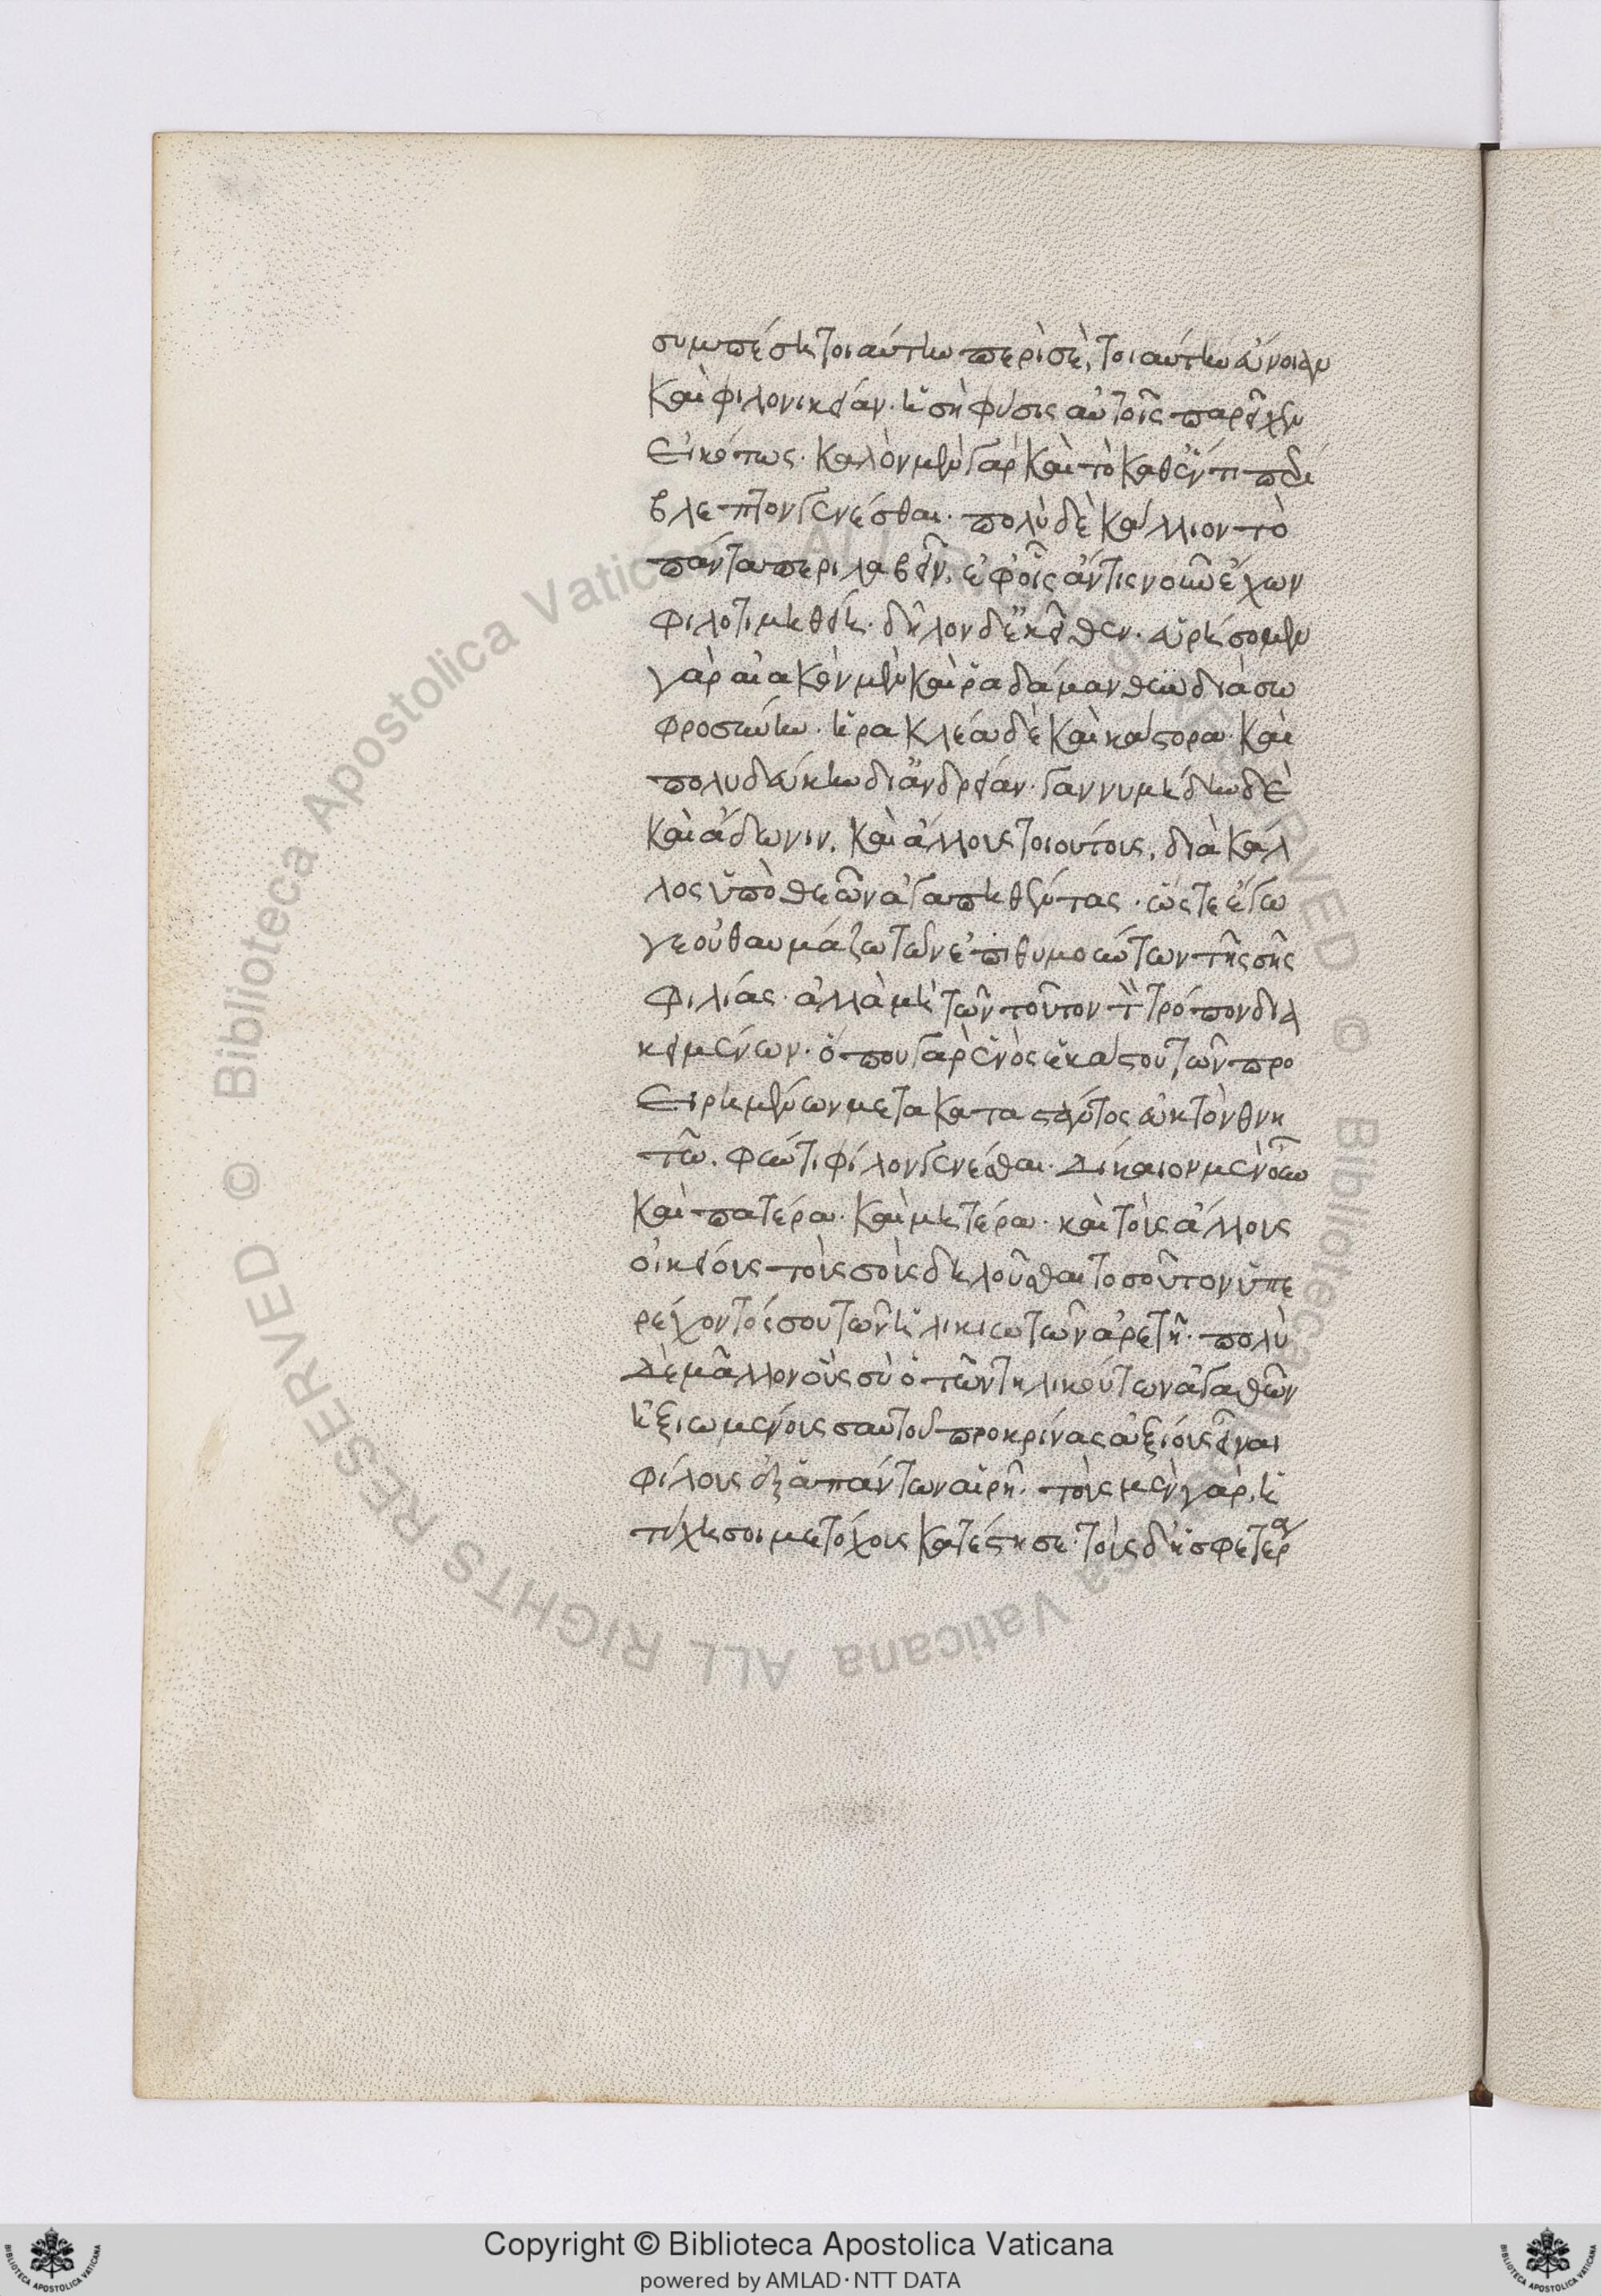 συμπέση τοιαύτην περὶ σὲ, τοιαύτην εὔνοιαν
καὶ φιλονεικείαν. ἡ σὴ φύσις αὐτοῖς παρεῖχεν
εἰκότως. καλὸν μὲν γὰρ καὶ τὸ καθ' ἕν τι περί
βλεπτον γενέσθαι. πολὺ δὲ κάλλιον τὸ
πάντα περιλαβεῖν, ἐφ' οἷς ἄν τις νοῦν ἔχων
φιλοτιμηθείη. δῆλον δ' ἐκεῖθεν. εὑρήσομεν
γὰρ αἰακὸν μὲν καὶ ῥαδάμανθυν διὰ σω
φροσύνην. ἡρακλέα δὲ καὶ κάστορα καὶ
πολυδεύκην δι' ἀνδρείαν. γαννυμήδην δὲ
καὶ ἄδωνιν, καὶ ἄλλους τοιούτους, διὰ κάλ
λος ὑπὸ θεῶν ἀγαπηθέντας. ὥστε ἔγω
γε οὐ θαυμάζω τῶν ἐπιθυμούντων τῆς σῆς
φιλίας. ἀλλὰ μὴ τῶν τοῦτον τὸν τρόπον δια
κειμένων. ὅπου γὰρ ἑνὸς ἑκάστου τῶν προ
ειρημένων μετακαταστάντος εὐκτὸν θνη
τῶ. φωτὶ φίλον γενέσθαι. δίκαιον μὲν οὖν
καὶ πατέρα. καὶ μητέρα. καὶ τοὺς ἄλλους
οἰκείους τοὺς σοὺς δηλοῦσθαι τοσοῦτον ὑπε
ρέχοντός σου τῶν ἡλικιωτῶν ἀρετῆ. πολὺ
δὲ μᾶλλον οὓς σὺ ὁ τῶν τηλικούτων ἀγαθῶν
ἠξιωμένους σαυτοῦ προκρίνας ἀξίους εἶναι
φίλους ἐξ ἁπάντων αἱρῆ. τοὺς μὲν γὰρ, ἡ
τύχη σοι μετόχους κατέστησε. τοὺς δ' ἡ σφετέρα